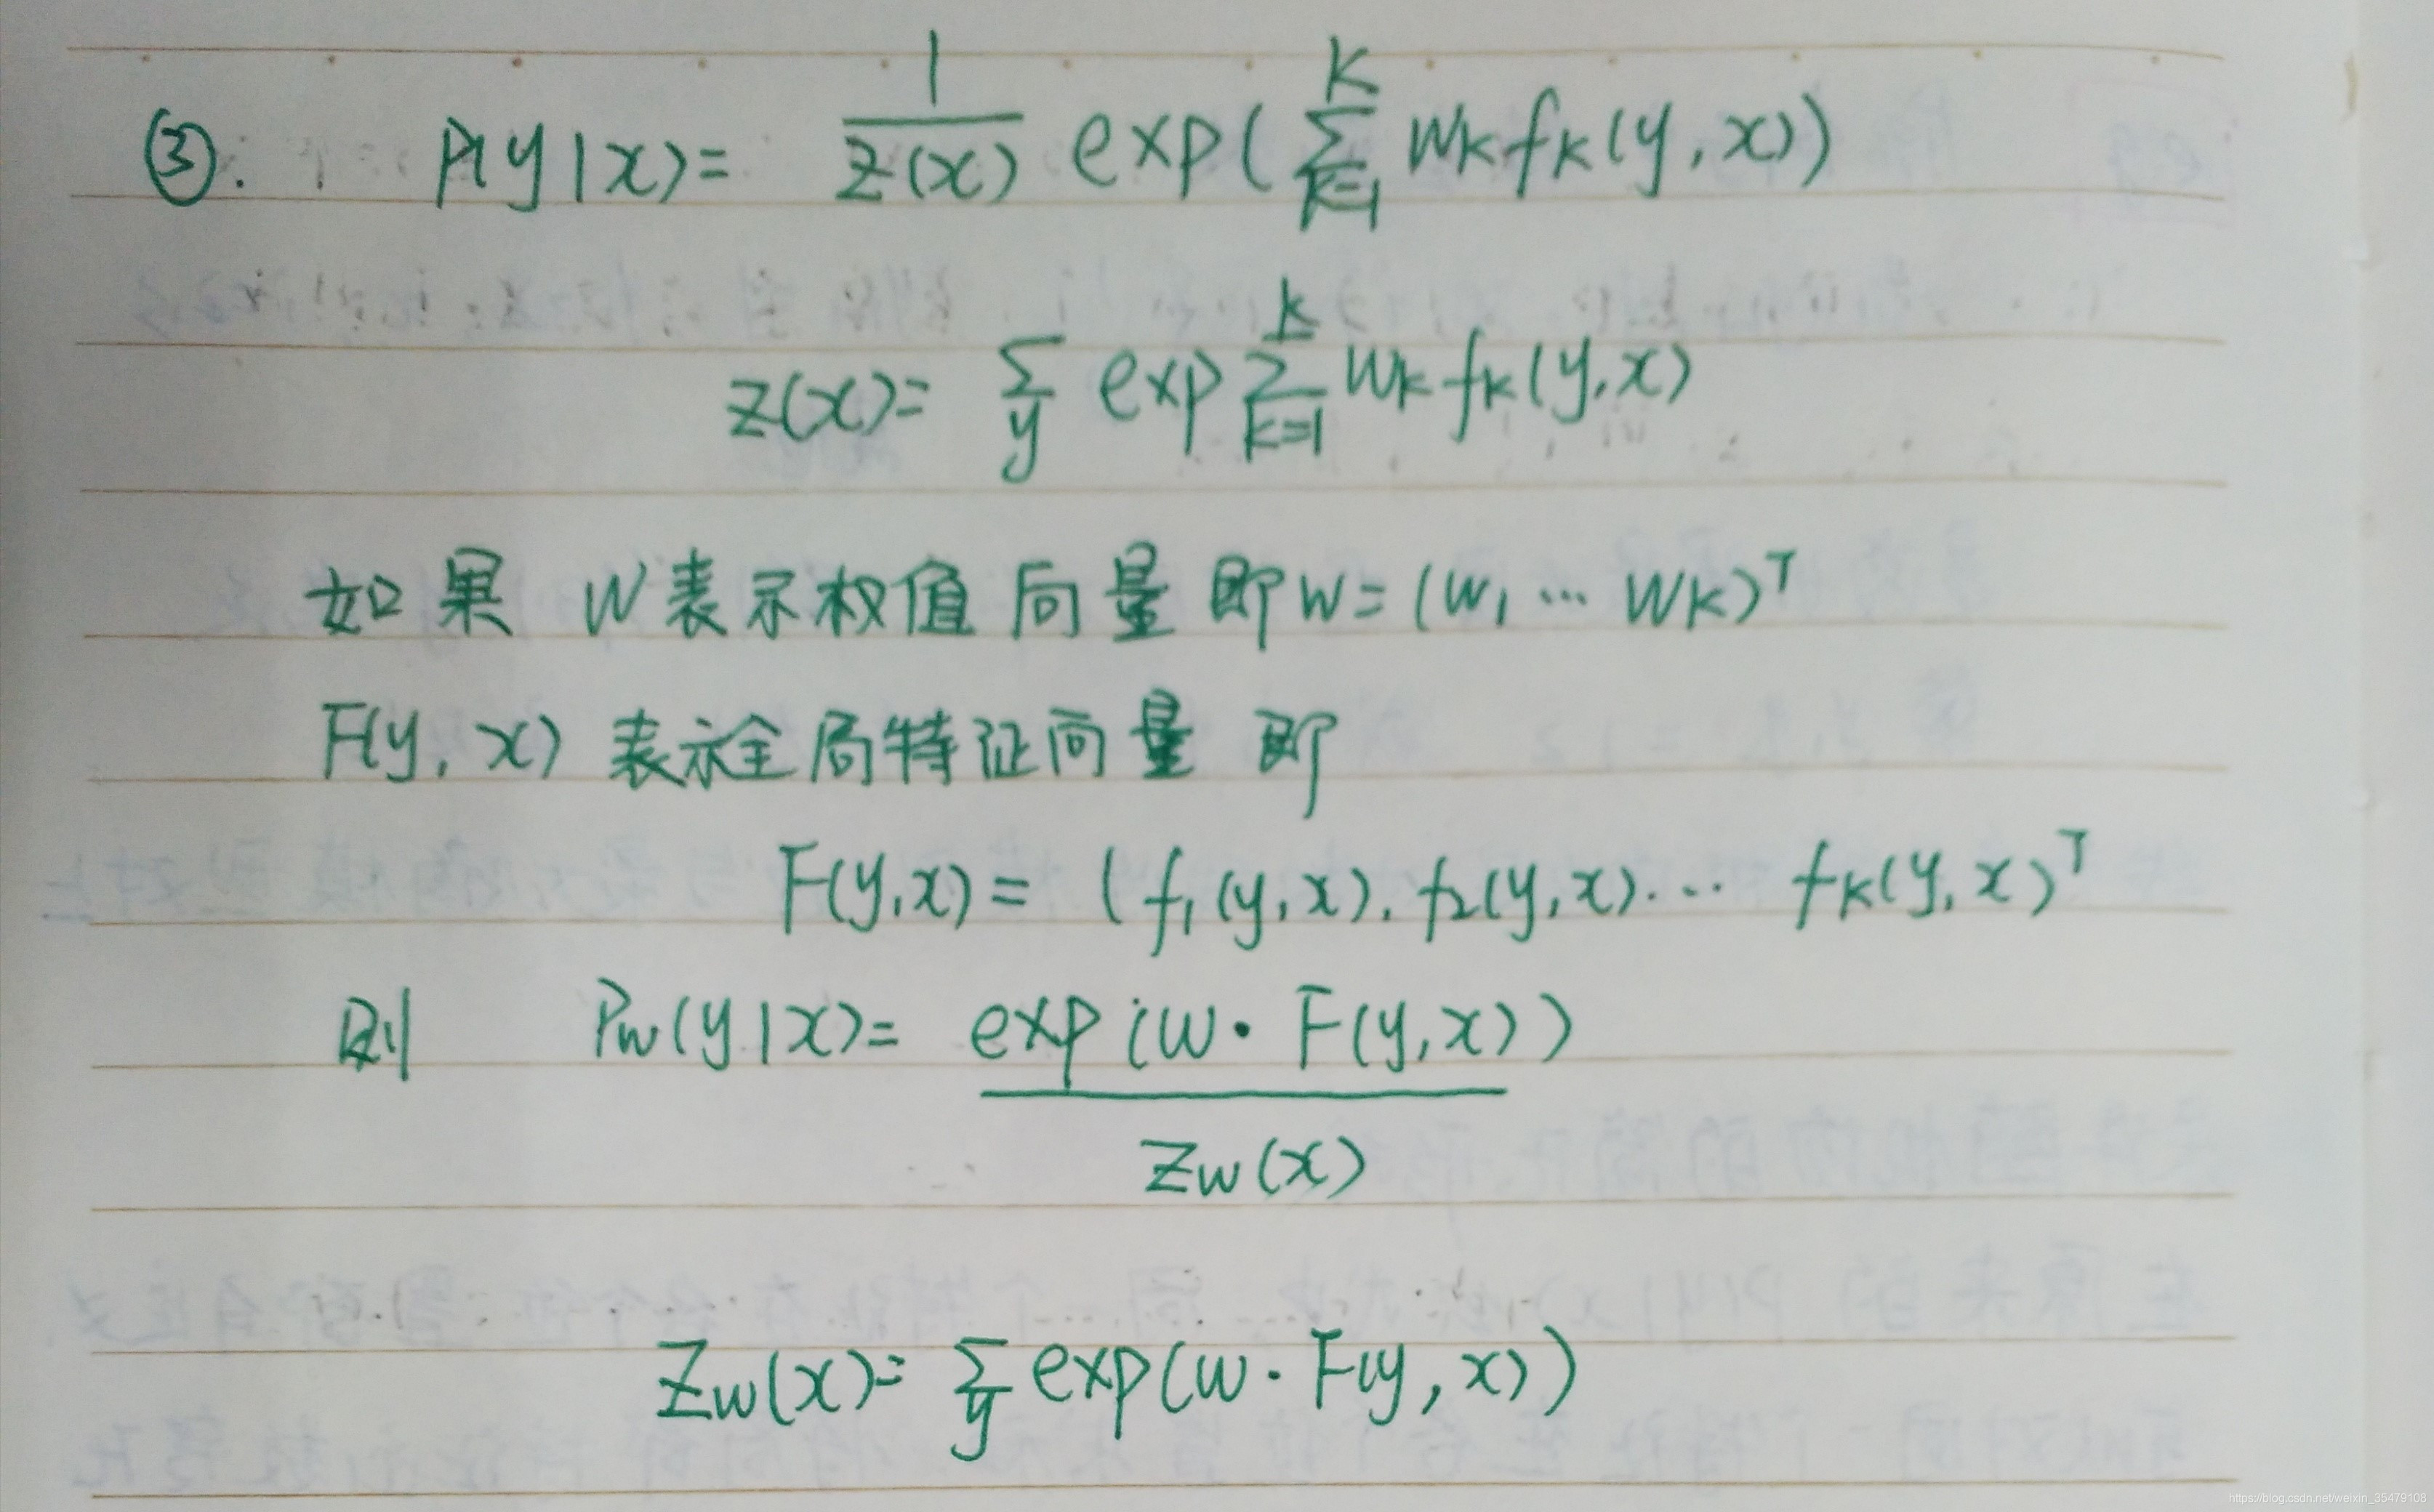 ③. P(y|x)= 1/Z(x) exp(∑_{k=1}^{K} w_k f_k(y,x))
Z(x)= ∑_y exp ∑_{k=1}^{K} w_k f_k(y,x)
如果 W表示权值向量 即W=(w_1 … w_K)^T
F(y,x) 表示全局特征向量 即
F(y,x)= (f_1(y,x), f_2(y,x)… f_K(y,x)^T
则 P_w(y|x)= exp(w·F(y,x)) / Z_w(x)
Z_w(x)= ∑_y exp(w·F(y,x))
https://blog.csdn.net/weixin_35479108